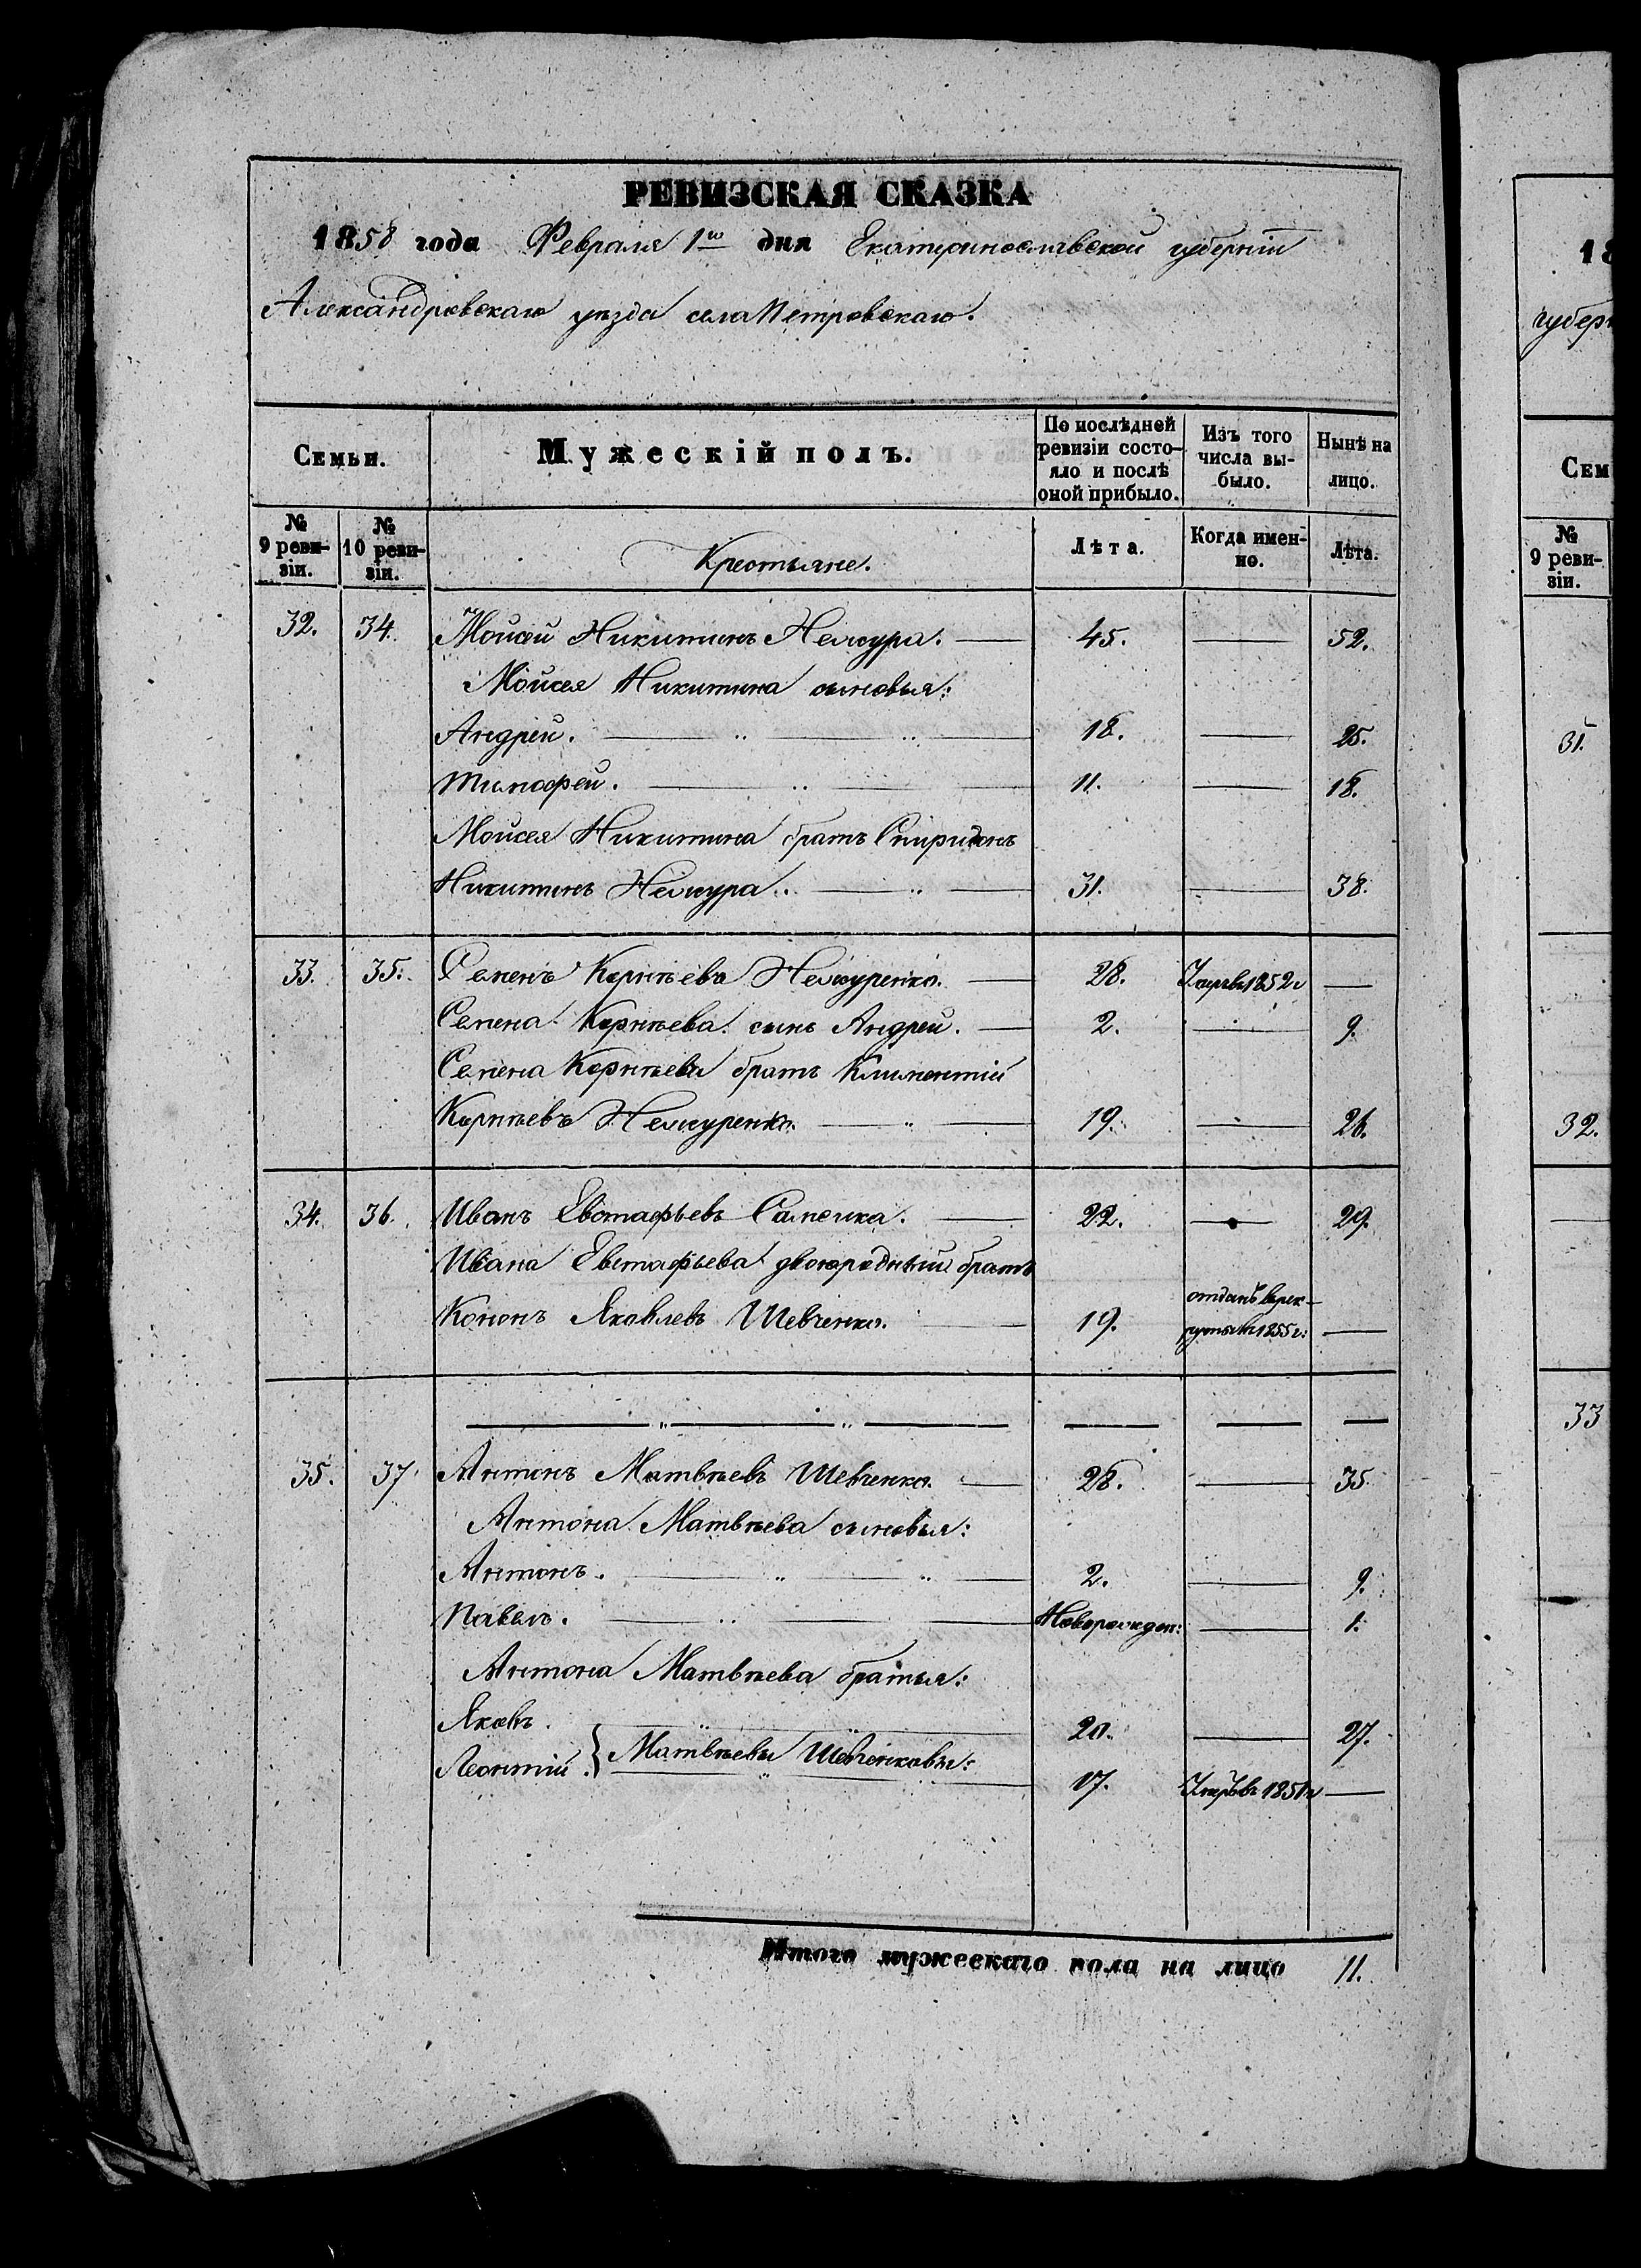 РЕВИЗСКАЯ СКАЗКА
1858 года Февраля 1го дня Екатеринославской губерніи
Александровскаго уѣзда села Петровскаго.
Семьи.
Мужескій полъ.
По послѣдней ревизіи состо-
яло и послѣ оной прибыло.
Изъ того числа вы-
было.
Нынѣ на лицо.
№ 9 реви-
зіи.
№ 10 реви-
зіи.
Крестьяне.
Лѣта.
Когда имен-
но.
Лѣта.
32. 34. Мойсей Никитинъ 45. 52.
Мойсея Никитина сыновья:
Андрей. 18. 25.
Тимофей. 11. 18.
Мойсея Никитина братъ Спиридонъ
Никитинъ 31. 38.
33. 35. Семенъ Корнѣевъ 28. Умеръ 1852г
Семена Корнѣева сынъ Андрей. 2. 9.
Семена Корнѣева братъ Климентій
Корнѣевъ 19. 26.
34. 36. Иванъ Евстафьевъ 22. 29.
Ивана Евстафьева двоюродный братъ
Кононъ Яковлевъ Шевченко. 19. отданъ въ рек-
руты въ 1855г:
35. 37. Антонъ Матвѣевъ Шевченко. 28. 35.
Антона Матвѣева сыновья:
Антонъ. 2. 9.
Павелъ. Новорожден: 1.
Антона Матвѣева братья:
Яковъ. 20. 27.
Леонтій. } Матвѣевы Шевченковы: 17. Умеръ въ 1851г
Итого мужескаго пола на лицо 11.
18
губерн
Сем
№ 9 реви-
зіи.
31.
32.
33